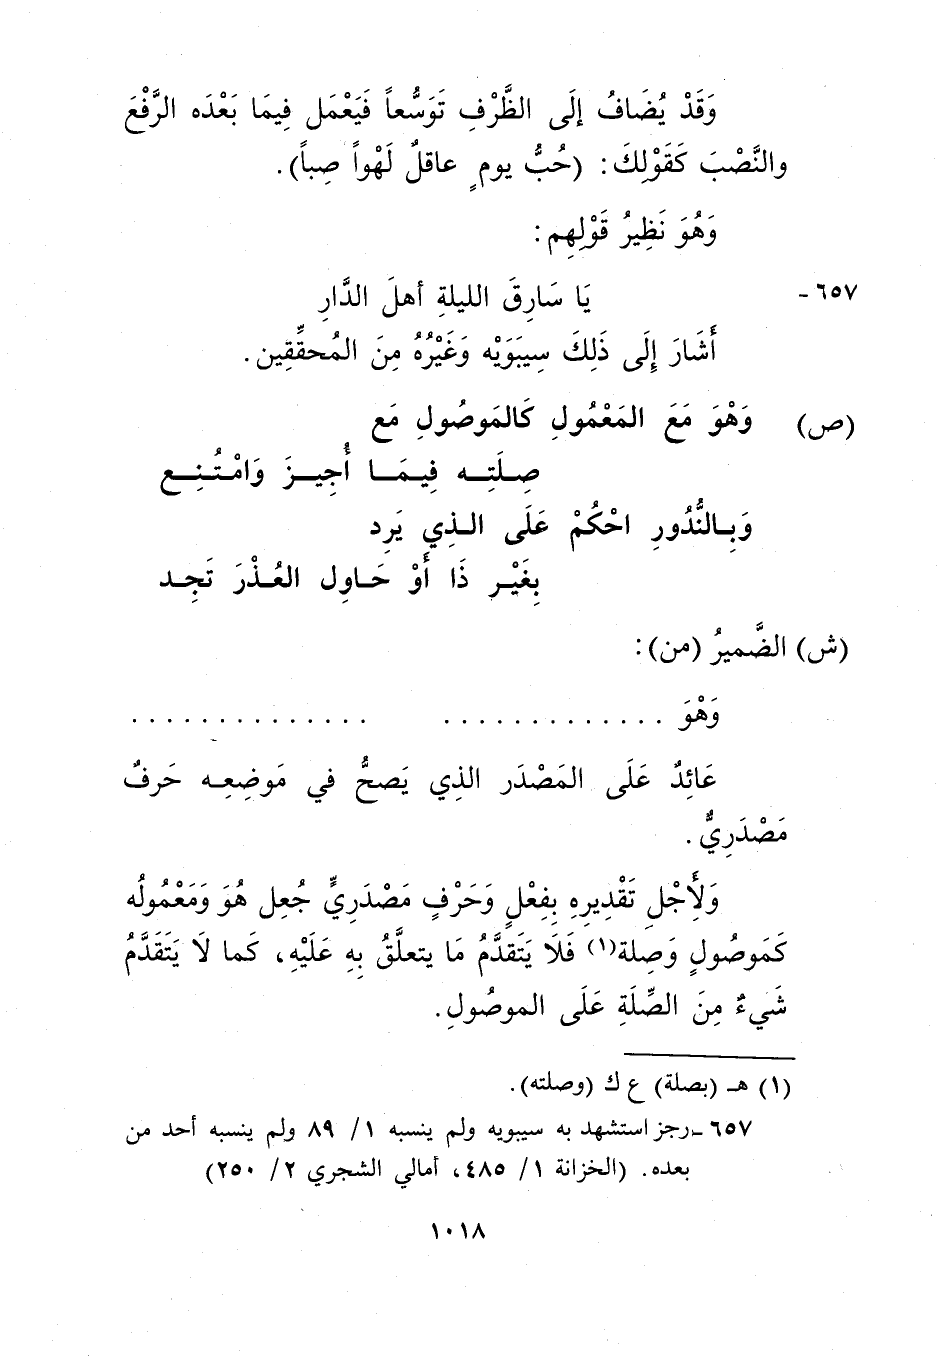 وَقَدْ يُضَافُ إلَى الظَّرْفِ تَوَسُّعاً فَيَعْمَل فِيمَا بَعْدَه الرَّفْعَ
والنَّصْبَ كَقَوْلِكَ: (حُبُّ يومٍ عاقلٌ لَهْواً صِباً).
وَهُوَ نَظِيرُ قَوْلِهِم:
٦٥٧- يَا سَارِقَ الليلةِ أهلَ الدَّارِ
أَشَارَ إِلَى ذَلِكَ سِيبَوَيْه وَغَيْرُهُ مِنَ المُحقِّقِين.
(ص) وَهْوَ مَعَ المَعْمُولِ كَالمَوصُولِ مَع
صِـلَتِـه فِيـمَـا أُجِيـزَ وَامْتُـنِـع
وَبِـالنُّدُورِ احْكُمْ عَلَى الـذِي يَرِد
بِغَيْـرِ ذَا أَوْ حَـاوِل العُـذْرَ تَجِـد
(ش) الضَّميرُ (من):
وَهْوَ . . . . . . . . . . . . . . . . . . . . . . . . . . .
عَائِدٌ عَلَى المَصْدَر الذِي يَصحُّ في مَوضِعِـه حَرفٌ
مَصْدَرِيٌّ.
وَلِأَجْلِ تَقْدِيرِهِ بِفِعْلٍ وَحَرْفٍ مَصْدَرِيٍّ جُعِل هُوَ وَمَعْمُولُه
كَمَوصُولٍ وَصِلة(١) فَلَا يَتَقدَّمُ مَا يتعلَّقُ بِهِ عَلَيْهِ، كَما لَا يَتَقَدَّمُ
شَيءٌ مِنَ الصِّلَةِ عَلَى الموصُولِ.
(١) هـ (بصلة) ع ك (وصلته).
٦٥٧ـ رجز استشهد به سيبويه ولم ينسبه ١/ ٨٩ ولم ينسبه أحد من
بعده. (الخزانة ١/ ٤٨٥، أمالي الشجري ٢/ ٢٥٠)
١٠١٨